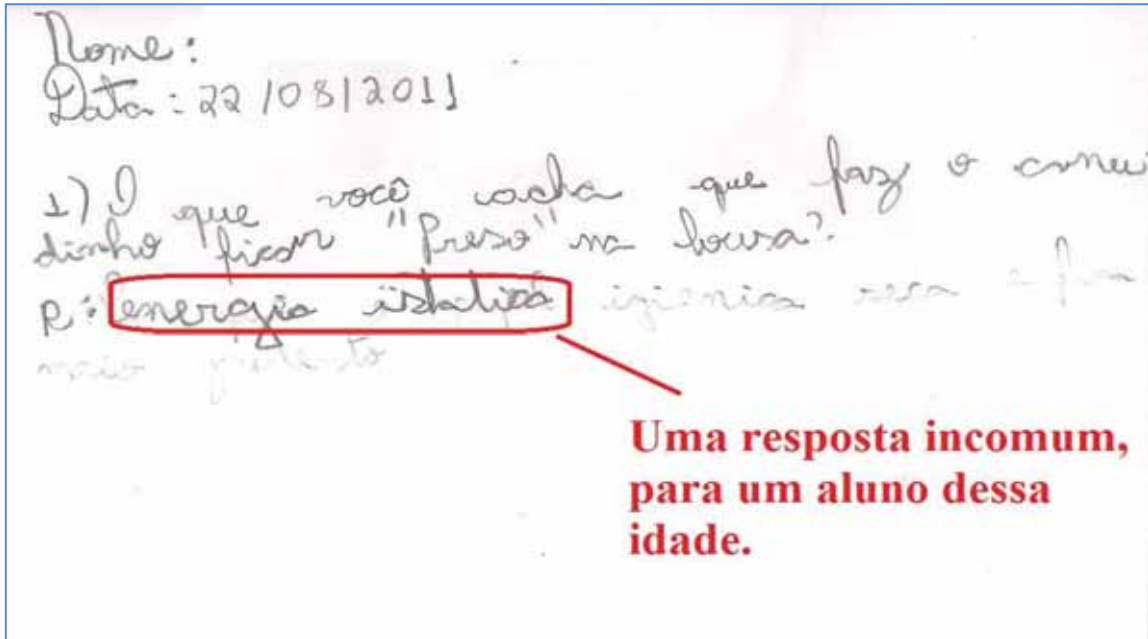 Nome:
Data: 22/08/2011
1) O que você acha que faz o canu
dinho ficar "Preso" na lousa?
R: energia istatica
Uma resposta incomum,
para um aluno dessa
idade.